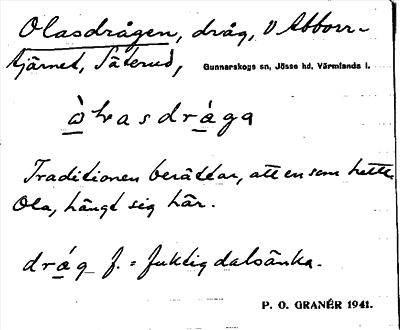 Olasdrågen, dråg, V Abborr-
tjärnet, Säterud, Gunnarskogs sn, Jösse hd, Värmlands l.
Traditionen berättar, att en som hette
Ola, hängt sig här.
dråg f. = fuktig dalsänka.
P. O. GRANÉR 1941.